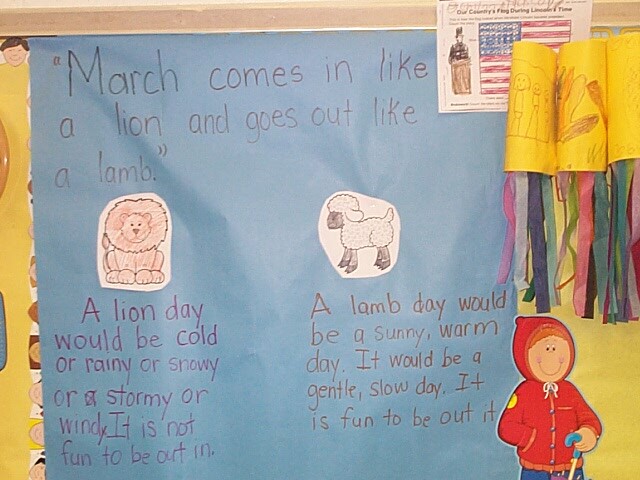 "March comes in like
a lion and goes out like
a lamb."
A lion day
would be cold
or rainy or snowy
or a stormy or
windy. It is not
fun to be out in.
A lamb day would
be a sunny, warm
day. It would be a
gentle, slow day. It
is fun to be out it
Our Country's Flag During Lincoln's Time